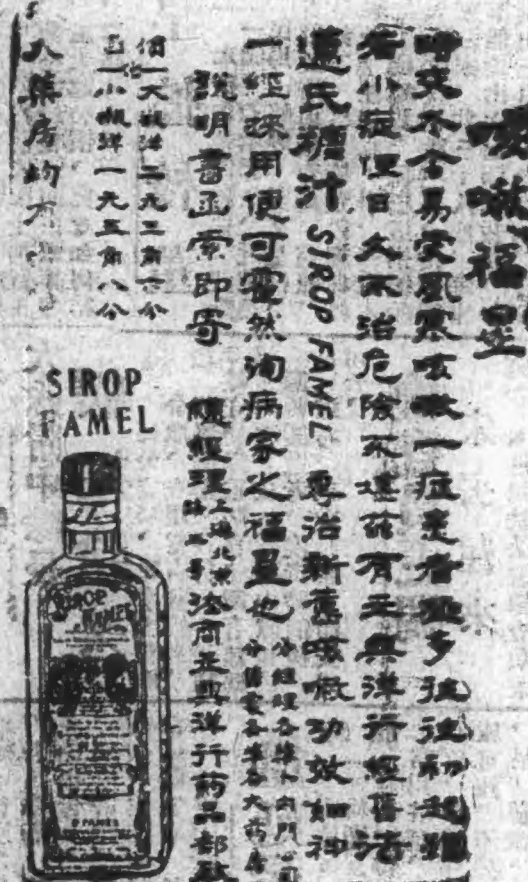 咳嗽福星
時交冬令易受風寒咳嗽一症患者極多往往初起雖
若小症但日久不治危險不堪茲有正興洋行經售法
邁氏糖汁 SIROP FAMEL 專治新舊咳嗽功效如神
一經試用便可霍然洵病家之福星也
分經理各埠
分售處各埠各大药房
說明書函索即寄
總經理上海北京路三号法商正興洋行药品部啟
價 大瓶洋二元三角六分
目 小瓶洋一元五角八分
大藥房均有
SIROP
FAMEL
SIROP
FAMEL